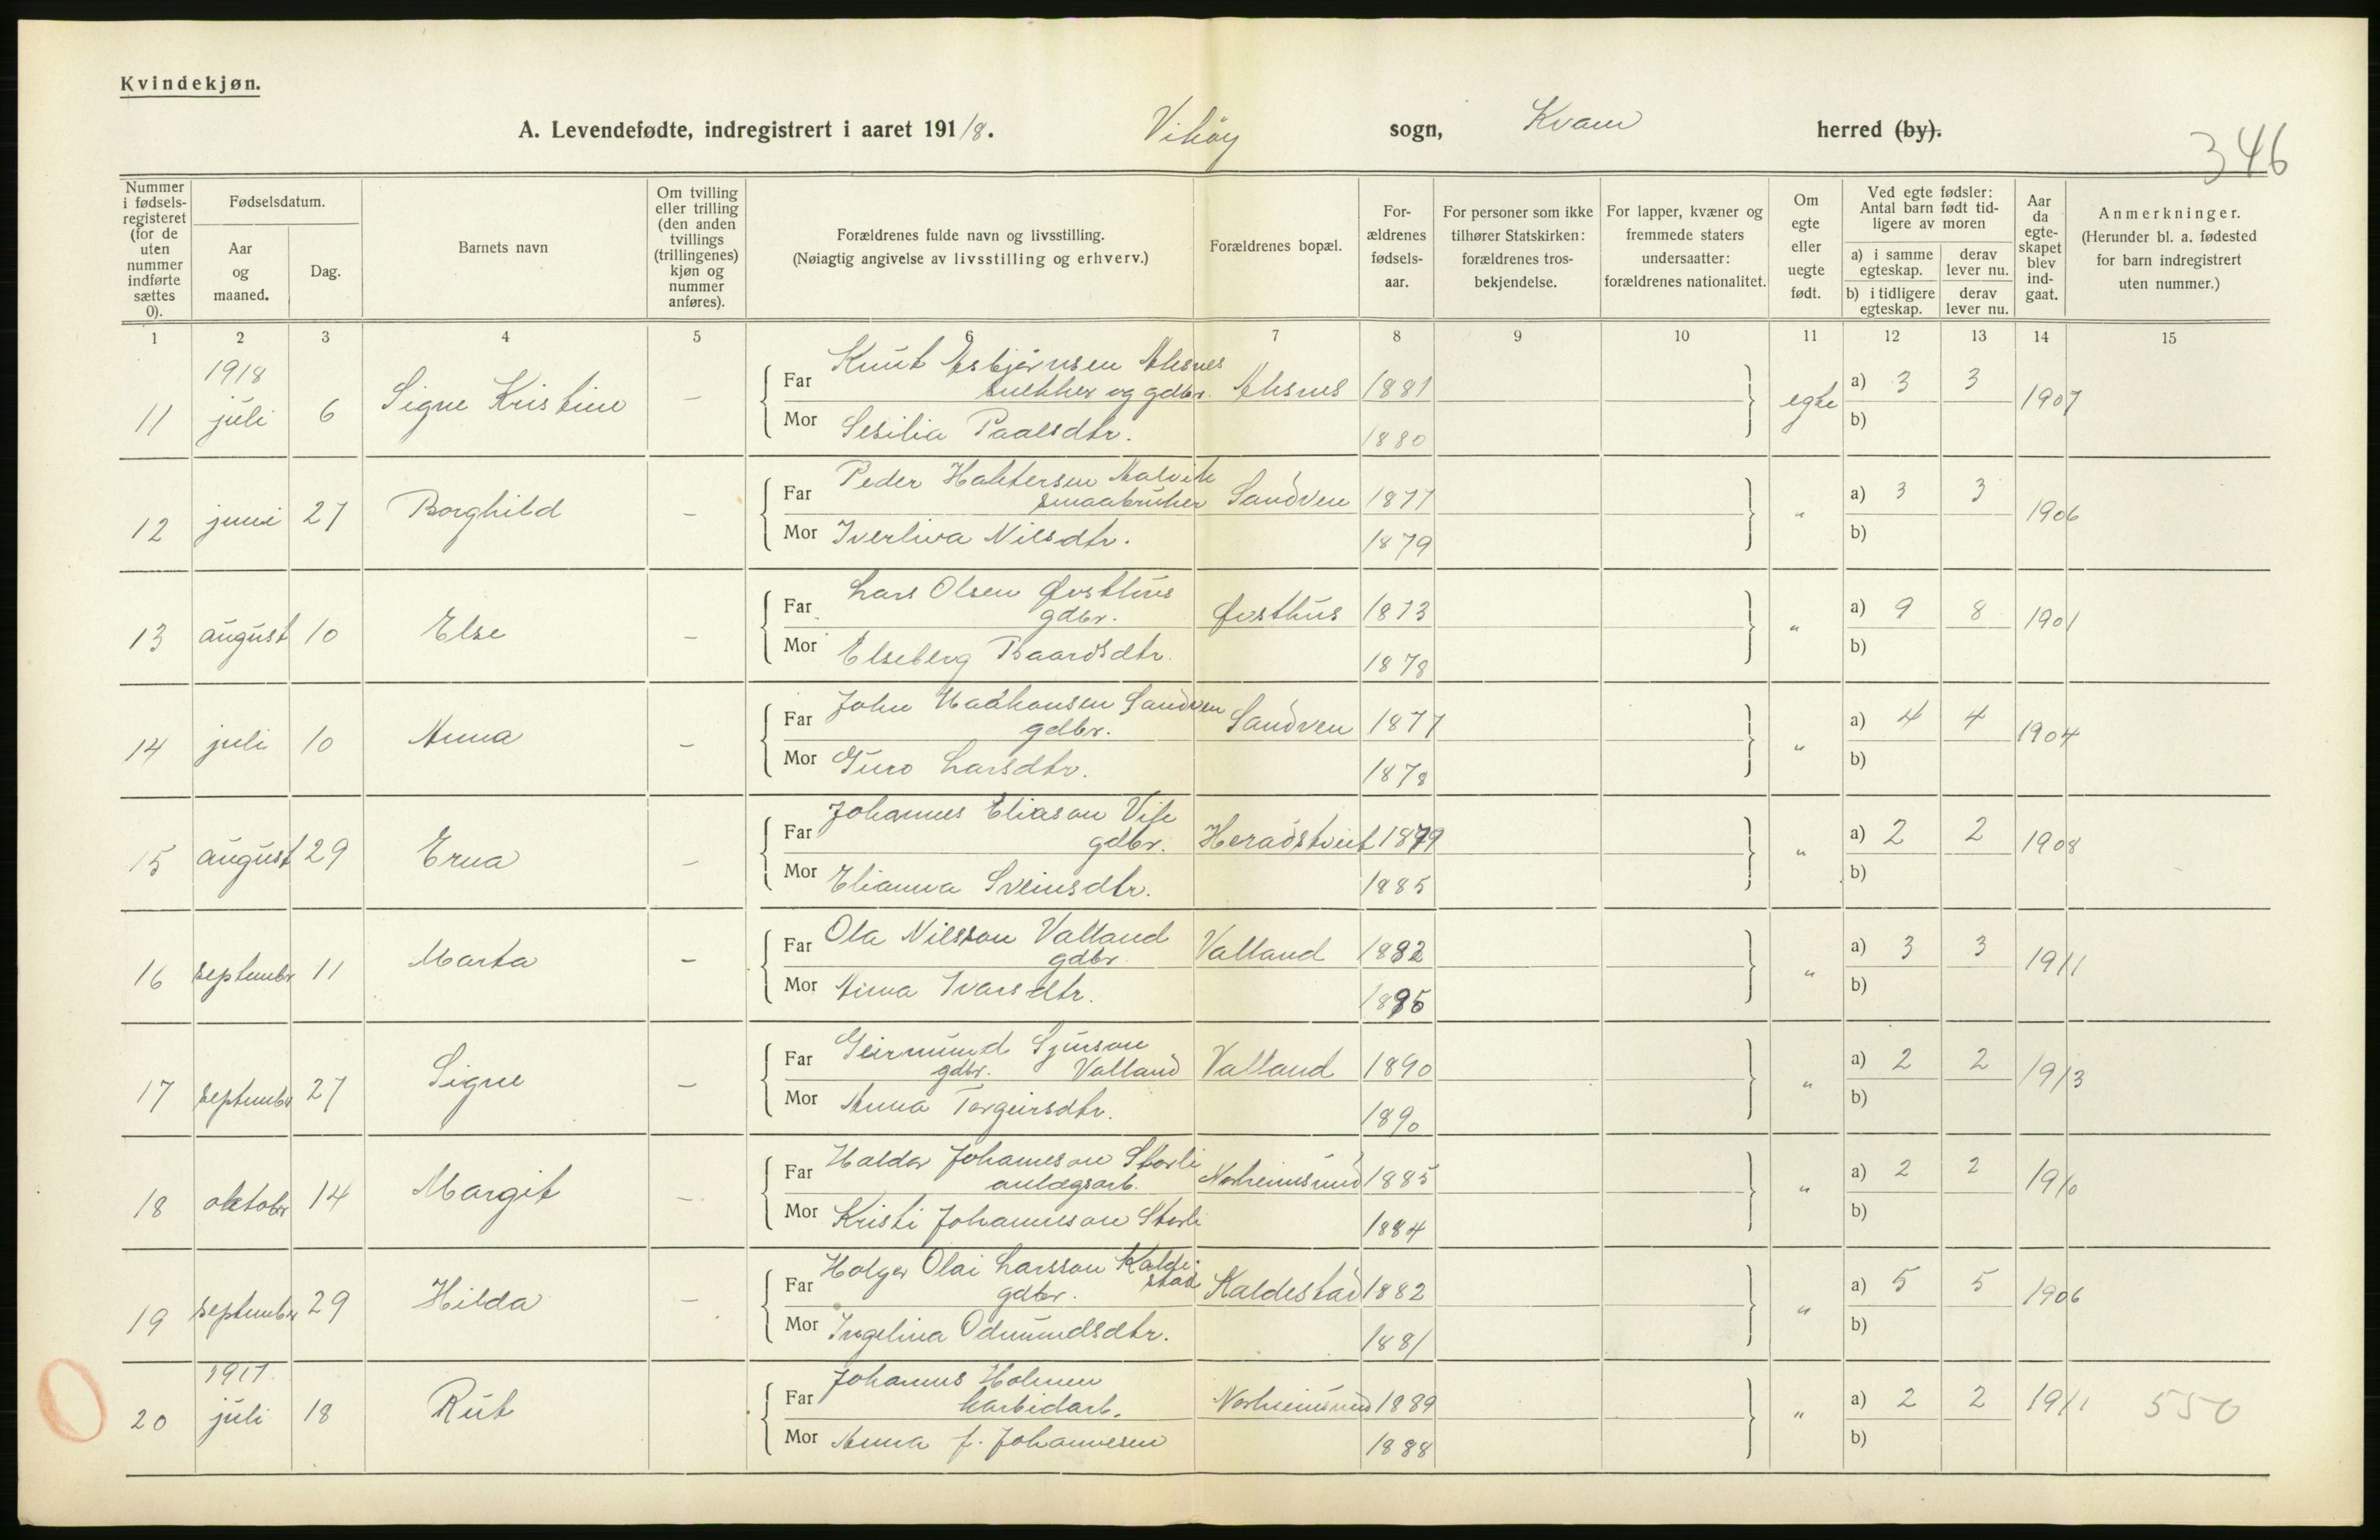 Kvindekjøn.
A. Levendefødte, indregistrert i aaret 1918. Vikøy sogn, Kvam herred (by).
346
Nummer i fødsels-registeret (for de uten nummer indførte sættes 0).
Fødselsdatum.
Aar og maaned.
Dag.
Barnets navn
Om tvilling eller trilling (den anden tvillings (trillingenes) kjøn og nummer anføres).
Forældrenes fulde navn og livsstilling.
(Nøiagtig angivelse av livsstilling og erhverv.)
Forældrenes bopæl.
For-ældrenes fødsels-aar.
For personer som ikke tilhører Statskirken: forældrenes tros-bekjendelse.
For lapper, kvæner og fremmede staters undersaatter: forældrenes nationalitet.
Om egte eller uegte født.
Ved egte fødsler: Antal barn født tid-ligere av moren
a) i samme egteskap. derav lever nu.
b) i tidligere egteskap. derav lever nu.
Aar da egte-skapet blev ind-gaat.
Anmerkninger.
(Herunder bl. a. fødested for barn indregistrert uten nummer.)
1 2 3 4 5 6 7 8 9 10 11 12 13 14 15
1918
11 juli 6 Signe Kristine — Far Knut Asbjørnsen Aksnes
snekker og gdbr. Aksnes 1881 egte a) 3 3 1907
Mor Sesilia Paalsdtr. 1880 b)
12 juni 27 Borghild — Far Peder Haktorsen Aalvik
smaabruker Sandven 1877 " a) 3 3 1906
Mor Iverliva Nilsdtr. 1879 b)
13 august 10 Else — Far Lars Olsen Øvsthus
gdbr. Øvsthus 1873 " a) 9 8 1901
Mor Elseberg Baardsdtr. 1878 b)
14 juli 10 Anna — Far John Haakonsen Sandven
gdbr. Sandven 1877 " a) 4 4 1904
Mor Guro Larsdtr. 1878 b)
15 august 29 Erna — Far Johannes Eliason Vik
gdbr. Heradstveit 1879 " a) 2 2 1908
Mor Elianna Sveinsdtr. 1885 b)
16 septembr 11 Marta — Far Ola Nilsson Valland
gdbr. Valland 1882 " a) 3 3 1911
Mor Anna Ivarsdtr. b)
17 septembr 27 Signe — Far Geirmund Sjurson
gdbr. Valland Valland 1890 " a) 2 2 1913
Mor Anna Torgeirsdtr. 1890 b)
18 oktobr 14 Margit — Far Haldor Johanneson Storli
anlægsarb. Norheimsund 1885 " a) 2 2 1910
Mor Kristi Johanneson Storli 1884 b)
19 septembr 29 Hilda — Far Holger Olai Larsson Kalde-
stad
gdbr. Kaldestad 1882 " a) 5 5 1906
Mor Ingelina Odmundsdtr. 1881 b)
1917
0 20 juli 18 Rut Far Johannes Holmen
karbidarb. Norheimsund 1889 " a) 2 2 1911 550
Mor Anna f. Johannesen 1888 b)